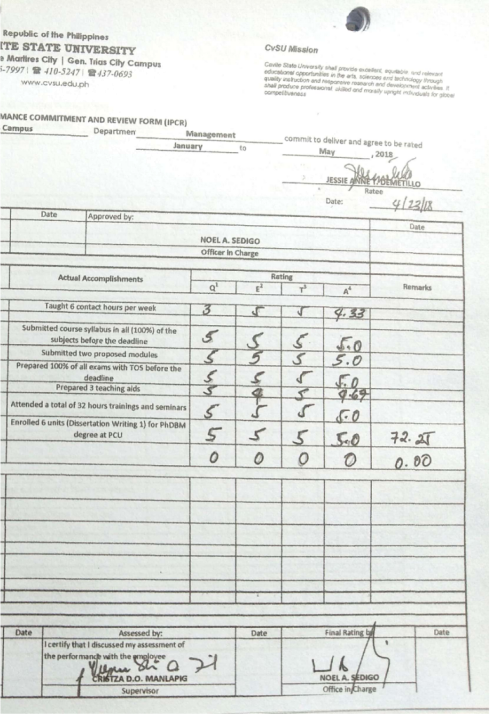 Republic of the Philippines
ITE STATE UNIVERSITY
e Martires City | Gen. Trias City Campus
-7997 | ☎ 410-5247 | ☎ 437-0693
www.cvsu.edu.ph
CvSU Mission
Cavite State University shall provide excellent, equitable and relevant
educational opportunities in the arts, sciences and technology through
quality instruction and responsive research and development activities. It
shall produce professional, skilled and morally upright individuals for global
competitiveness
MANCE COMMITMENT AND REVIEW FORM (IPCR)
Campus Departmen Management commit to deliver and agree to be rated
January to May , 2018
JESSIE ANNE T. DEMETILLO
Ratee
Date: 4/23/18
Date Approved by: Date
NOEL A. SEDIGO
Officer in Charge
Actual Accomplishments Rating Remarks
Q1 E2 T3 A4
Taught 6 contact hours per week 3 5 5 4.33
Submitted course syllabus in all (100%) of the
subjects before the deadline 5 5 5 5.0
Submitted two proposed modules 5 5 5 5.0
Prepared 100% of all exams with TOS before the
deadline 5 5 5 5.0
Prepared 3 teaching aids 5 4 5 4.67
Attended a total of 32 hours trainings and seminars 5 5 5 5.0
Enrolled 6 units (Dissertation Writing 1) for PhDBM
degree at PCU 5 5 5 5.0 72.25
0 0 0 0 0.00
Date Assessed by: Date Final Rating by Date
I certify that I discussed my assessment of
the performance with the employee
CRISTZA D.O. MANLAPIG NOEL A. SEDIGO
Supervisor Office in Charge